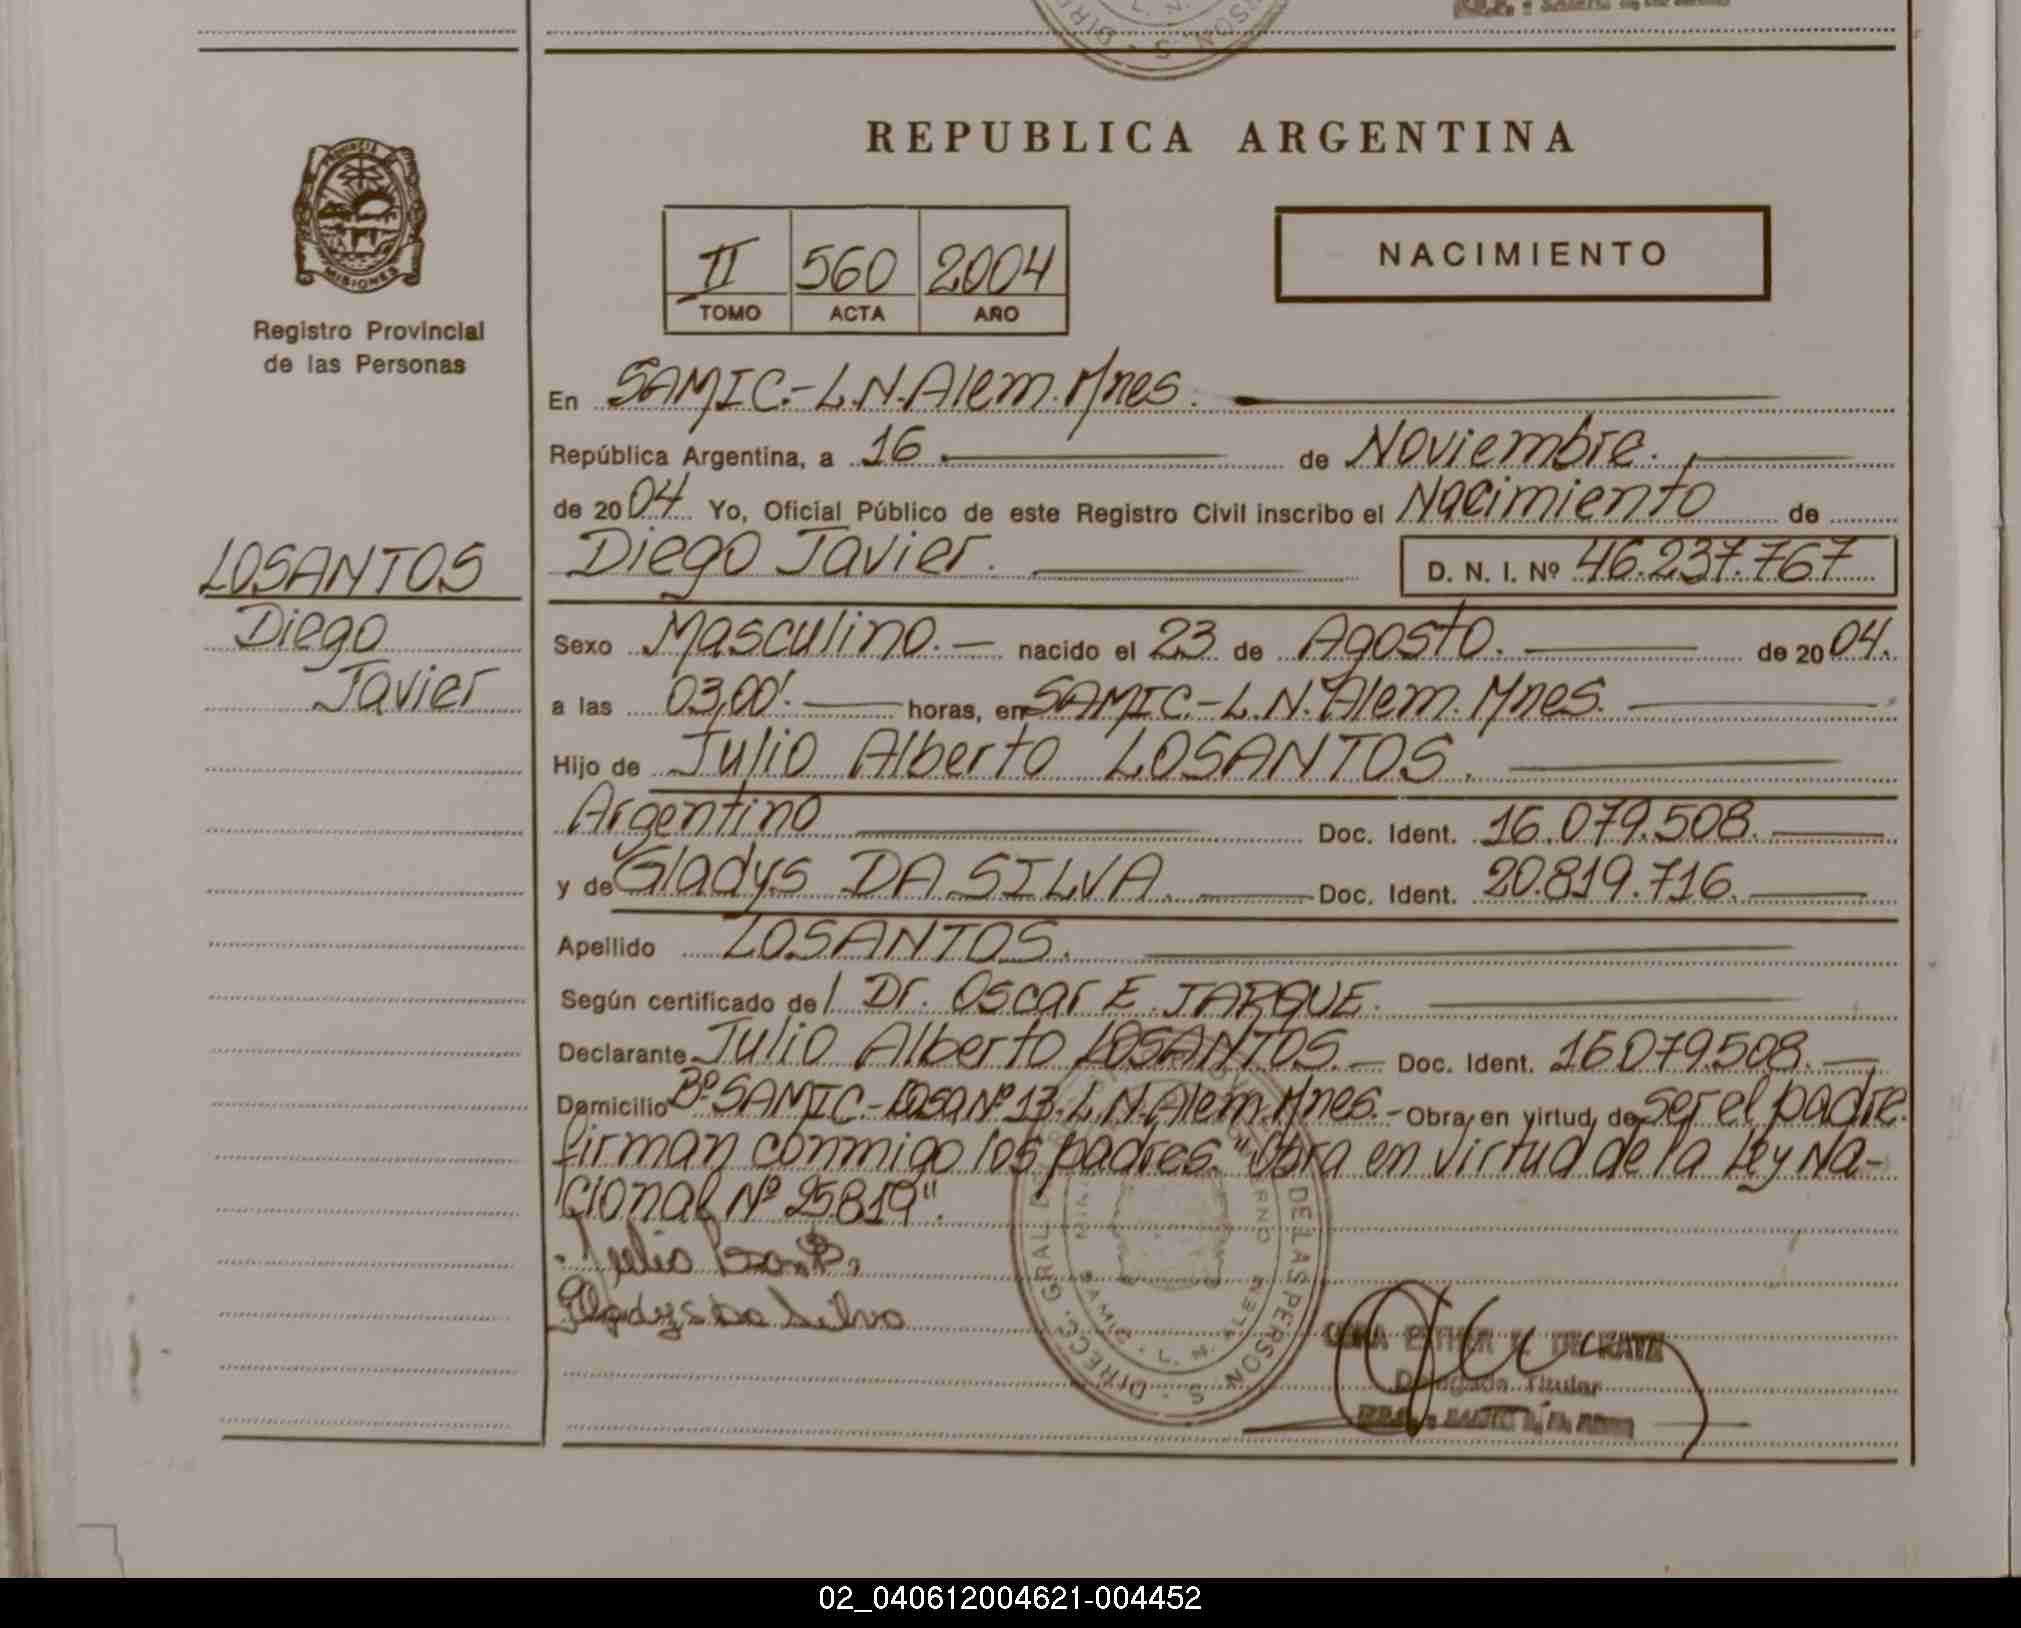 REPUBLICA ARGENTINA
PROVINCIA DE
MISIONES
Registro Provincial
de las Personas
II 560 2004
TOMO ACTA AÑO
NACIMIENTO
En SAMIC.-L.N.Alem.Mnes.
República Argentina, a 16 de Noviembre.
de 2004 Yo, Oficial Público de este Registro Civil inscribo el Nacimiento de
Diego Javier. D. N. I. Nº 46.237.767
LOSANTOS
Diego
Javier
Sexo Masculino.- nacido el 23 de Agosto. de 2004.
a las 03,00'. horas, en SAMIC.-L.N.Alem.Mnes.
Hijo de Julio Alberto LOSANTOS.
Argentino Doc. Ident. 16.079.508.
y de Gladys DA SILVA. Doc. Ident. 20.819.716.
Apellido LOSANTOS.
Según certificado de/ Dr. Oscar E. JARQUE.
Declarante Julio Alberto LOSANTOS.- Doc. Ident. 16079.508.-
Domicilio Bº SAMIC.-Casa Nº 13.L.N.Alem.Mnes.- Obra en virtud de ser el padre.
firman conmigo los padres. "Obra en virtud de la Ley Na-
cional Nº 25.819".
Julio
Gladys Da Silva
DIRECC. GRAL DE LAS PERSONAS
SAMIC - L. N. ALEM
ESTHER DE KATZ
Delegada Titular
02_040612004621-004452